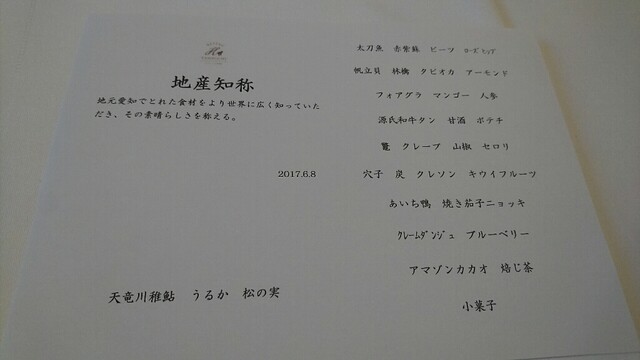 地産知称
地元愛知でとれた食材をより世界に広く知っていた
だき、その素晴らしさを称える。
2017.6.8
天竜川稚鮎 うるか 松の実
太刀魚 赤紫蘇 ビーツ ﾛｰｽﾞﾋｯﾌﾟ
帆立貝 林檎 タピオカ アーモンド
フォアグラ マンゴー 人参
源氏和牛タン 甘酒 ポテチ
鼈 クレープ 山椒 セロリ
穴子 炭 クレソン キウイフルーツ
あいち鴨 焼き茄子ニョッキ
ｸﾚｰﾑﾀﾞﾝｼﾞｭ ブルーベリー
アマゾンカカオ 焙じ茶
小菓子